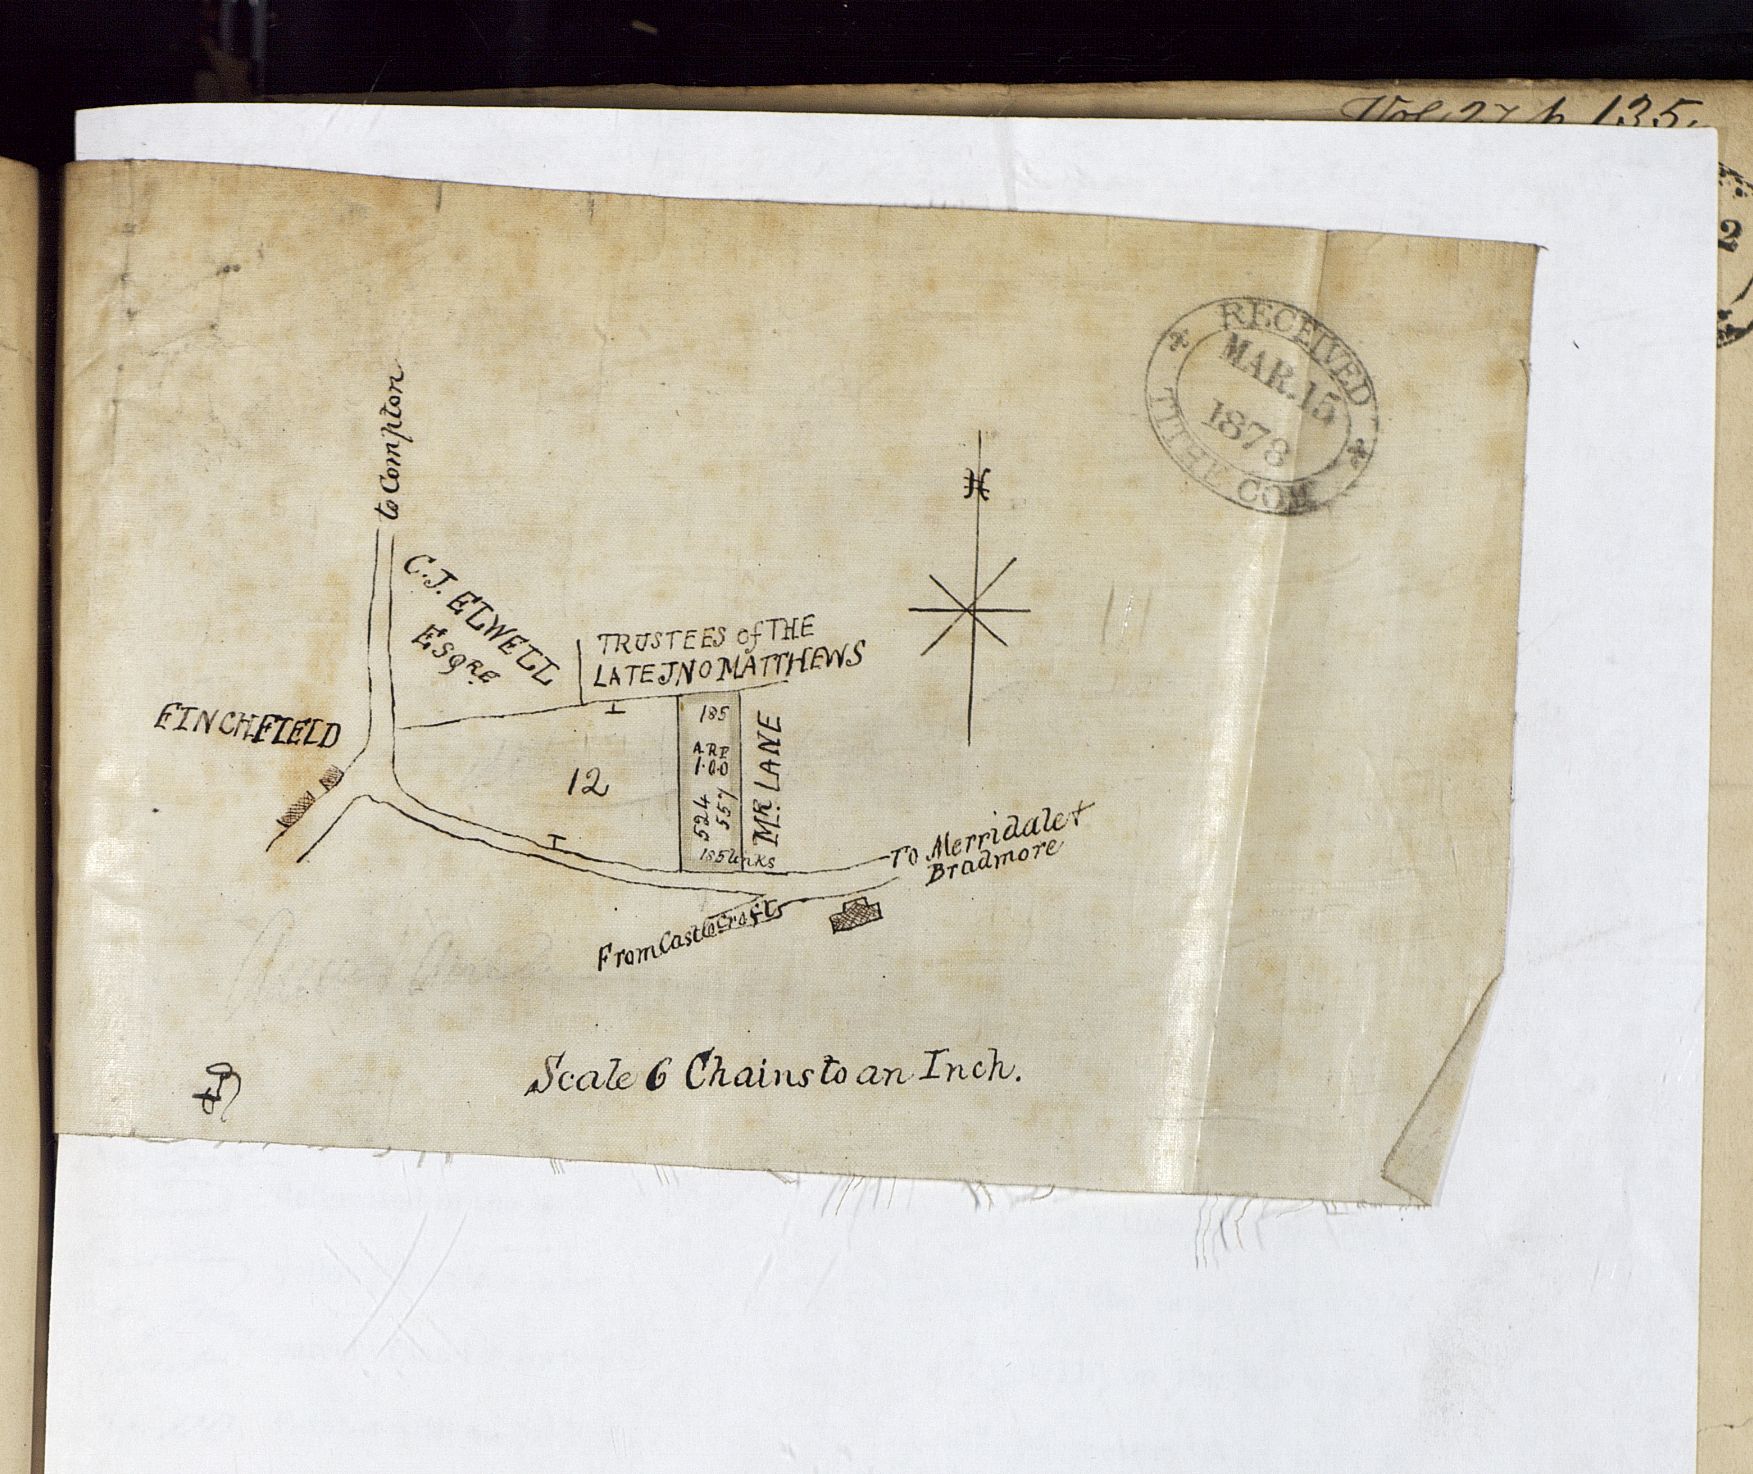 Vol 27 p 135.
2
RECEIVED
MAR. 15
1878
TITHE COM
to Compton
C. J. ELWELL
ESQRE.
TRUSTEES of THE
LATE JNO MATTHEWS
FINCHFIELD
12
185
A. R. P.
1. 0. 0
524
557
185 links
MR. LANE
To Merridale &
Bradmore
From Castlecroft
Scale 6 Chains to an Inch.